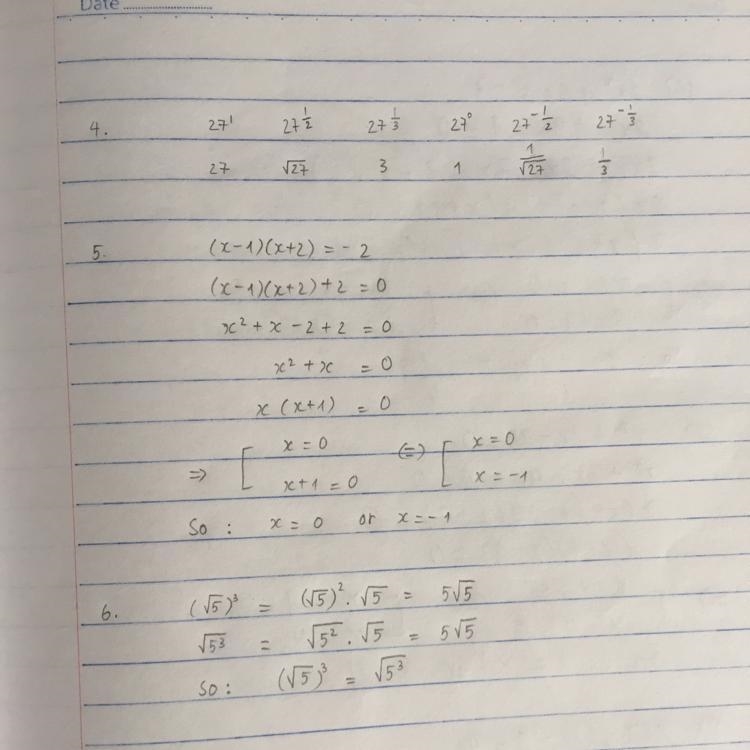 Date ..............................
4. 27¹ 27^½ 27^⅓ 27⁰ 27^-½ 27^-⅓
27 √27 3 1 1/√27 1/3
5. (x-1)(x+2) = -2
(x-1)(x+2)+2 = 0
x² + x - 2 + 2 = 0
x² + x = 0
x (x+1) = 0
⇒ [ x = 0 ⇔ [ x = 0
x+1 = 0 x = -1
So : x = 0 or x = -1
6. (√5)³ = (√5)² . √5 = 5√5
√5³ = √5² . √5 = 5√5
So : (√5)³ = √5³